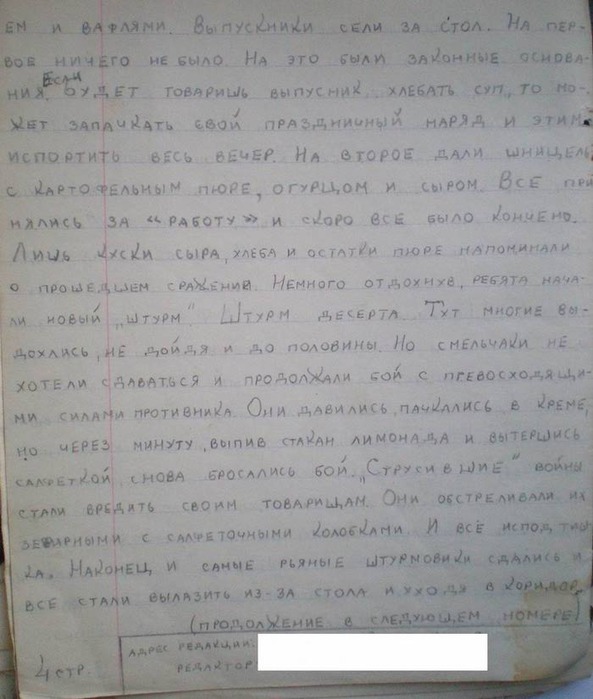 ЕМ И ВАФЛЯМИ. ВЫПУСКНИКИ СЕЛИ ЗА СТОЛ. НА ПЕР-
ВОЕ НИЧЕГО НЕ БЫЛО. НА ЭТО БЫЛИ ЗАКОННЫЕ ОСНОВА-
НИЯ. ЕСЛИ БУДЕТ ТОВАРИЩЬ ВЫПУСНИК ХЛЕБАТЬ СУП, ТО МО-
ЖЕТ ЗАПАЧКАТЬ СВОЙ ПРАЗДНИЧНЫЙ НАРЯД И ЭТИМ
ИСПОРТИТЬ ВЕСЬ ВЕЧЕР. НА ВТОРОЕ ДАЛИ ШНИЦЕЛЬ
С КАРТОФЕЛЬНЫМ ПЮРЕ, ОГУРЦОМ И СЫРОМ. ВСЕ ПРИ
НЯЛИСЬ ЗА "РАБОТУ" И СКОРО ВСЕ БЫЛО КОНЧЕНО.
ЛИШЬ КУСКИ СЫРА, ХЛЕБА И ОСТАТКИ ПЮРЕ НАПОМИНАЛИ
О ПРОШЕДШЕМ СРАЖЕНИИ. НЕМНОГО ОТДОХНУВ, РЕБЯТА НАЧА-
ЛИ НОВЫЙ „ШТУРМ". ШТУРМ ДЕСЕРТА. ТУТ МНОГИЕ ВЫ-
ДОХЛИСЬ, НЕ ДОЙДЯ И ДО ПОЛОВИНЫ. НО СМЕЛЬЧАКИ НЕ
ХОТЕЛИ СДАВАТЬСЯ И ПРОДОЛЖАЛИ БОЙ С ПРЕВОСХОДЯЩИ-
МИ СИЛАМИ ПРОТИВНИКА. ОНИ ДАВИЛИСЬ, ПАЧКАЛИСЬ В КРЕМЕ,
НО ЧЕРЕЗ МИНУТУ, ВЫПИВ СТАКАН ЛИМОНАДА И ВЫТЕРШИСЬ
САЛФЕТКОЙ, СНОВА БРОСАЛИСЬ БОЙ. „СТРУСИВШИЕ" ВОЙНЫ
СТАЛИ ВРЕДИТЬ СВОИМ ТОВАРИЩАМ. ОНИ ОБСТРЕЛИВАЛИ ИХ
ЗЕФИРНЫМИ С САЛФЕТОЧНЫМИ КОЛОБКАМИ. И ВСЁ ИСПОДТИШ
КА. НАКОНЕЦ И САМЫЕ РЬЯНЫЕ ШТУРМОВИКИ СДАЛИСЬ И
ВСЕ СТАЛИ ВЫЛАЗИТЬ ИЗ-ЗА СТОЛА И УХОДЯ В КОРИДОР.
(ПРОДОЛЖЕНИЕ В СЛЕДУЮЩЕМ НОМЕРЕ)
4 СТР.
АДРЕС РЕДАКЦИИ:
РЕДАКТОР